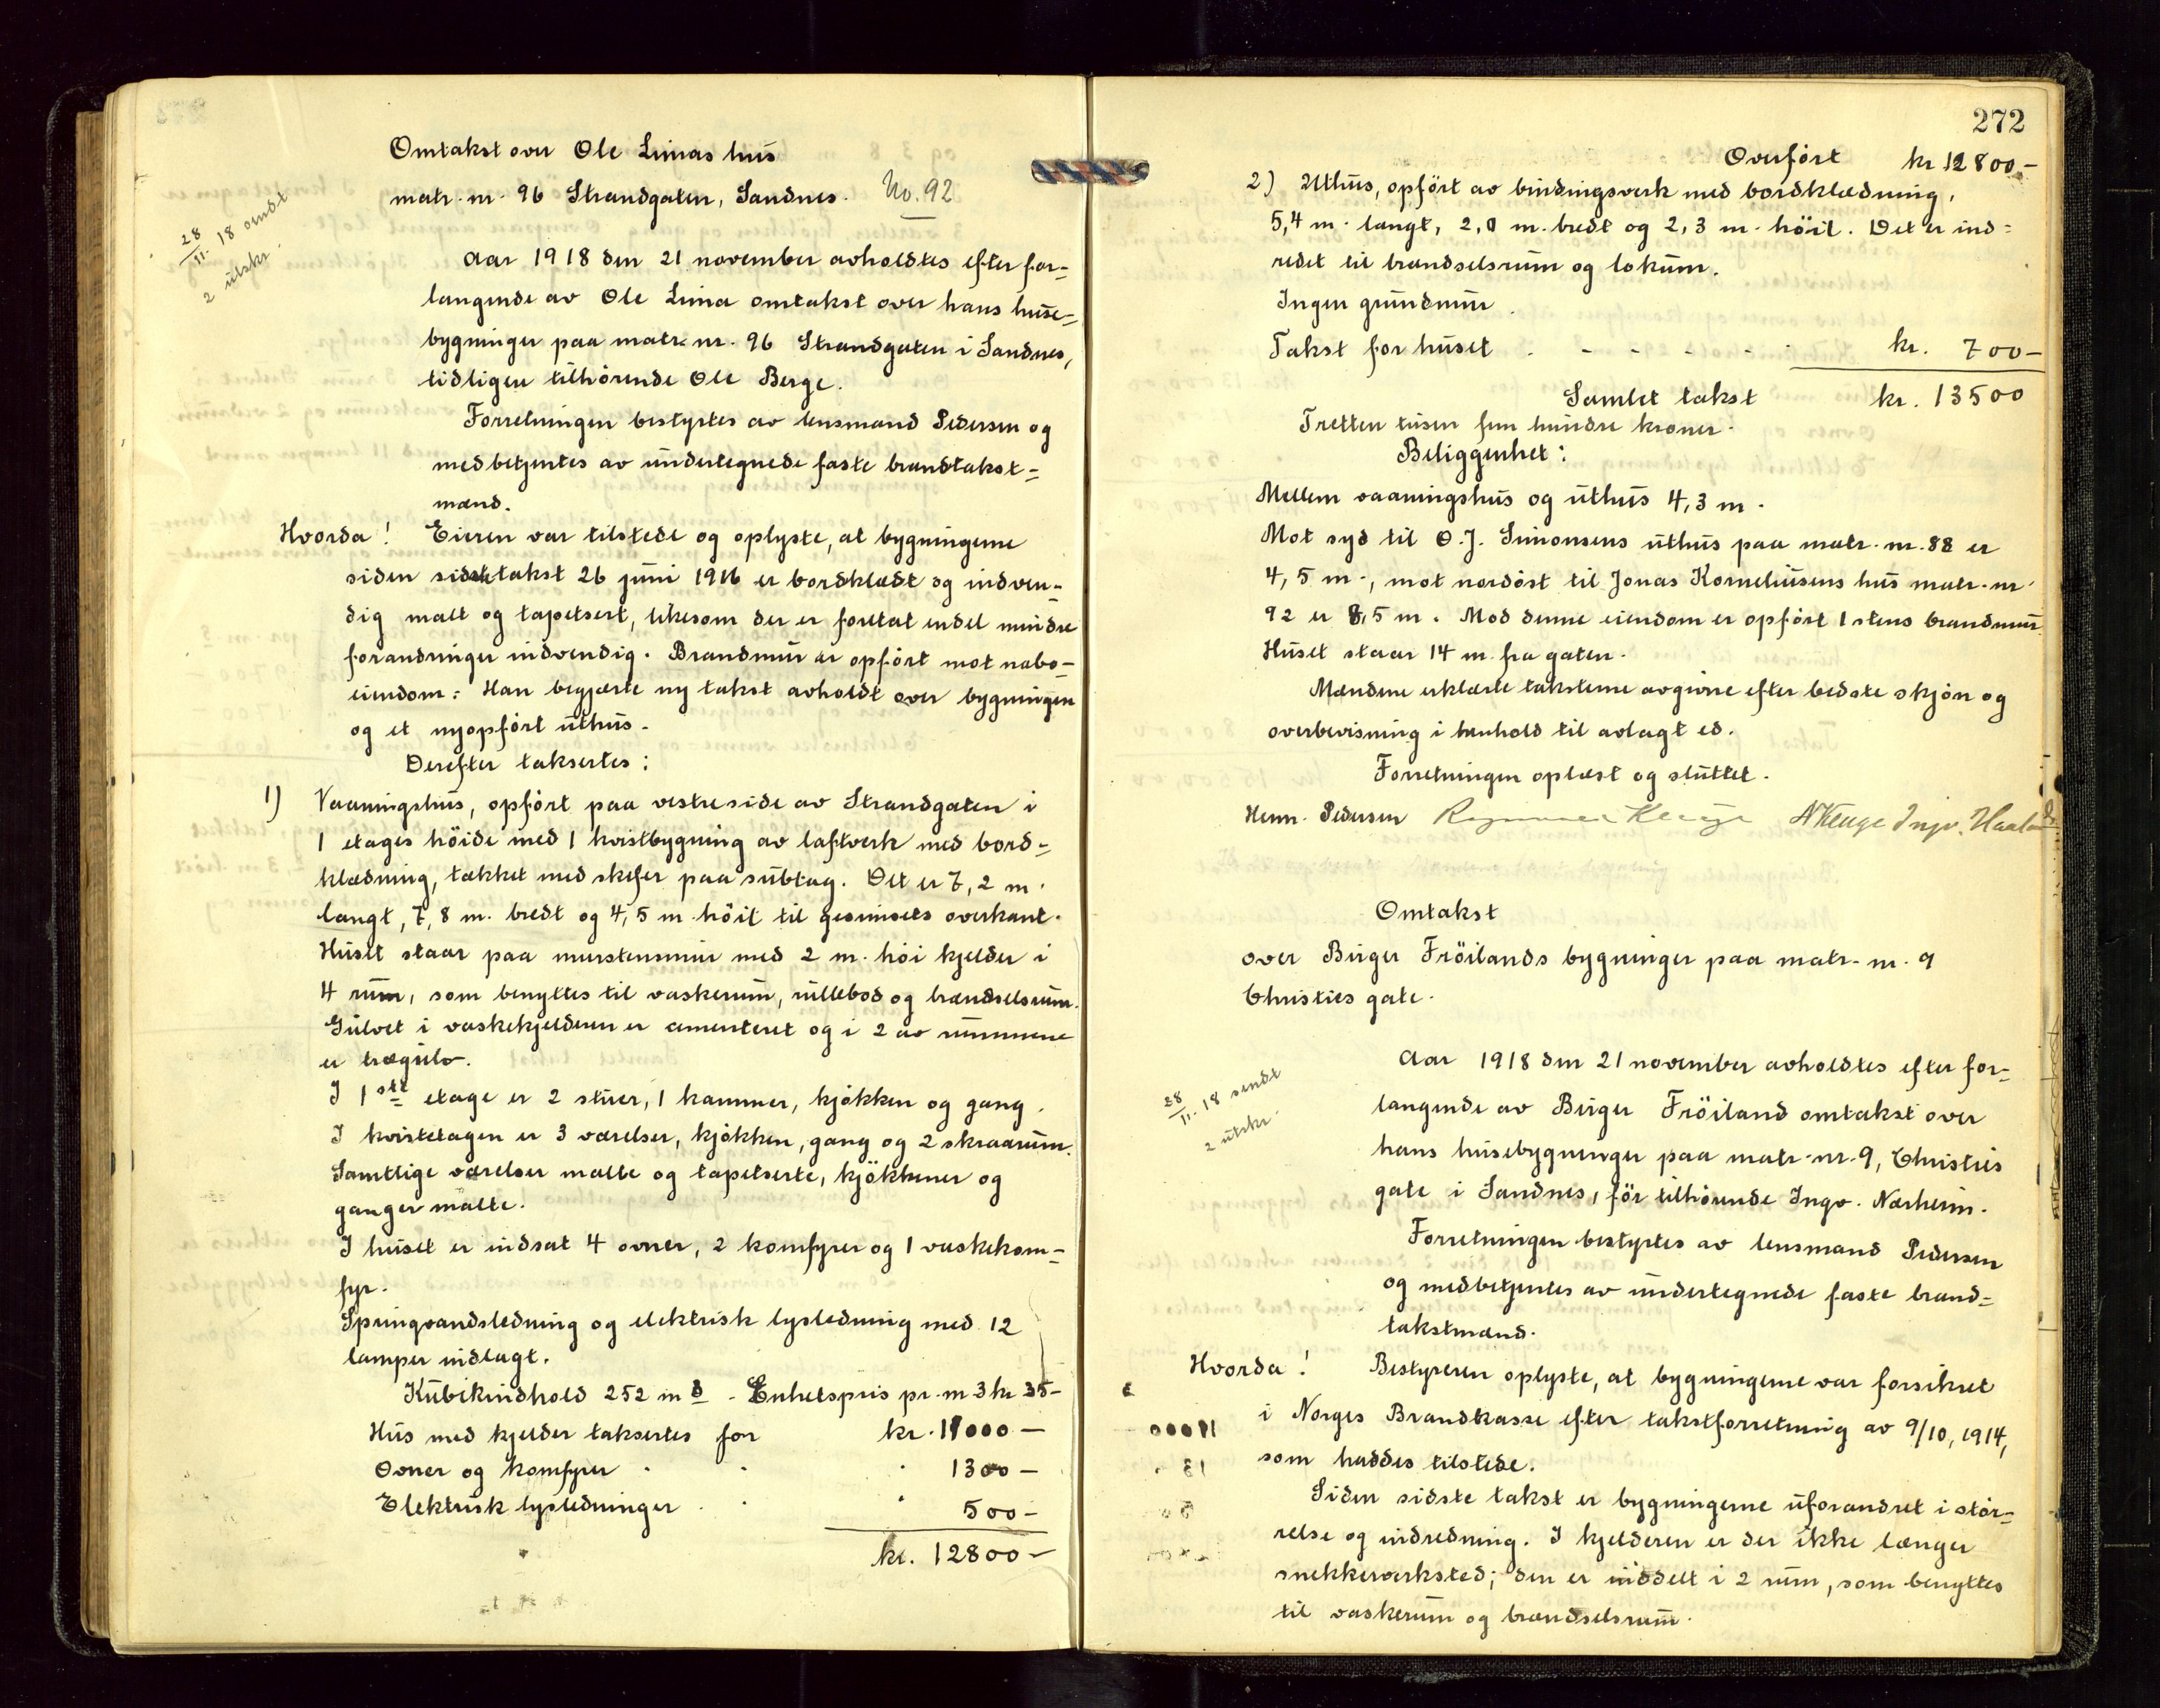 Omtakst over Ole Limas hus
matr. nr. 96 Strandgaten, Sandnes. No. 92
28/11. 18 sendt
2 utskr.
Aar 1918 den 21 november avholdtes efter for-
langende av Ole Lima omtakst over hans huse-
bygninger paa matr. nr. 96 Strandgaten i Sandnes,
tidligere tilhørende Ole Berge.
Forretningen bestyrtes av lensmand Pedersen og
medbetjentes av undertegnede faste brandtakst-
mænd.
Hvorda! Eieren var tilstede og oplyste, at bygningerne
siden sidste takst 26 juni 1916 er bordklædt og indven-
dig malt og tapetsert, likesom der er foretat endel mindre
forandringer indvendig. Brandmur er opført mot nabo-
eiendom. Han begjærte ny takst avholdt over bygningen
og et nyopført uthus.
Derefter taksertes:
1) Vaaningshus, opført paa vestre side av Strandgaten i
1 etages höide med 1 kvistbygning av laftverk med bord-
klædning, tækket med skifer paa subtag. Det er 7,2 m.
langt, 7,8 m. bredt og 4,5 m. höit til gesimsets overkant.
Huset staar paa murstensmur med 2 m. höi kjelder i
4 rum, som benyttes til vaskerum, rullebod og brændselsrum.
Gulvet i vaskekjelderen er cementeret og i 2 av rummene
er trægulv.
I 1ste etage er 2 stuer, 1 kammer, kjøkken og gang.
I kvistetagen er 3 værelser, kjøkken, gang og 2 skraarum.
Samtlige værelser malte og tapetserte, kjökkener og
ganger malte.
I huset er indsat 4 ovner, 2 komfyrer og 1 vaskekom-
fyr.
Springvandsledning og elektrisk lysledning med 12
lamper indlagt.
Kubikindhold 252 m 3 - Enhetspris pr. m 3 kr 35-
Hus med kjelder taksertes for kr. 11000 -
Ovner og komfyrer . . . 1300 -
Elektrisk lysledninger . . . 500 -
kr. 12800 -
272
Overført kr 12800.-
2) Uthus, opført av bindingsverk med bordklædning,
5,4 m. langt, 2,0 m. bredt og 2,3 m. höit. Det er ind-
redet til brændselsrum og lokum.
Ingen grundmur.
Takst for huset . - - - - . kr. 700 -
Samlet takst kr. 13500
Tretten tusen fem hundre kroner.
Beliggenhet:
Mellem vaaningshus og uthus 4,3 m.
Mot syd til O. J. Simonsens uthus paa matr. nr. 88 er
4,5 m., mot nordöst til Jonas Korneliusens hus matr. nr.
92 er 8,5 m. Mod denne eiendom er opført 1 stens brandmur.
Huset staar 14 m. fra gaten.
Mændene erklærte taksterne avgivne efter bedste skjøn og
overbevisning i henhold til avlagt ed.
Forretningen oplæst og sluttet.
Henn. Pedersen Ingv. Haaland
Omtakst
over Birger Fröilands bygninger paa matr. nr. 9
Christies gate.
28/11. 18 sendt
2 utskr.
Aar 1918 den 21 november avholdtes efter for-
langende av Birger Fröiland omtakst over
hans husebygninger paa matr. nr. 9, Christies
gate i Sandnes, för tilhørende Ingv. Nærheim.
Forretningen bestyrtes av lensmand Pedersen
og medbetjentes av undertegnede faste brand-
takstmænd.
Hvorda! Bestyreren oplyste, at bygningerne var forsikret
i Norges Brandkasse efter takstforretning av 9/10, 1914,
som haddes tilstede.
Siden sidste takst er bygningerne uforandret i stör-
relse og indredning. I kjelderen er der ikke længer
snekkerverksted; den er inddelt i 2 rum, som benyttes
til vaskerum og brændselsrum.